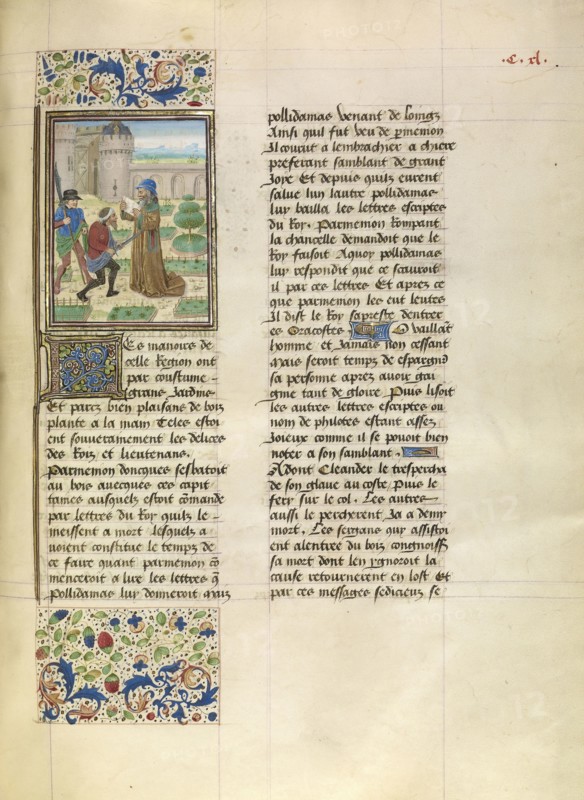 .C. xl.
Es manoirs de
celle Region ont
par coustume
grans Jardins
Et parcz bien plaisans de bois
plante a la main Celes estoi
ent souverainement les delices
des Rois et lieutenans.
Parmenion doncques sesbatoit
au bois avecques ces capit
taines ausquels estoit cōmande
par lettres du Roy quilz le
meissent a mort lesquels a
voient constitue le temps de
ce faire quant parmenion cō
menceroit a lire les lettres q̄
Pollidamas luy donneroit Mais
pollidamas venant de loingz
Ainsi quil fut veu de pmenion
Il courut a lembrachier a chiere
preferant samblant de grant
Joye Et depuis quilz eurent
salue lun lautre pollidamas
luy bailla les lettres escriptes
du Roy. Parmenion Rompant
la chancelle demandoit que le
Roy faisoit Aquoy pollidamas
luy respondit que ce scauroit
il par ces lettres Et apres ce
que parmenion les eut leutes
Il dist le Roy sapreste dentrer
es Oracostes O vaillāt
homme et Jamais non cessant
Mais seroit temps de espargnr̄
sa personne apres avoir gai
gnie tant de gloire Puis lisoit
les autres lettres escriptes ou
nom de philotes estant assez
Joieux comme il se povoit bien
noter a son samblant.
Adont Cleander le trespercha
de son glave au coste Puis le
fery sur le col. Les autres
aussi le percherent Ja a demy
mort. Les sergans quy assistoi
ent alentree du bois congnoiss
sa mort dont len ygnoroit la
cause retournerent en lost Et
par ces messages sedicieux se